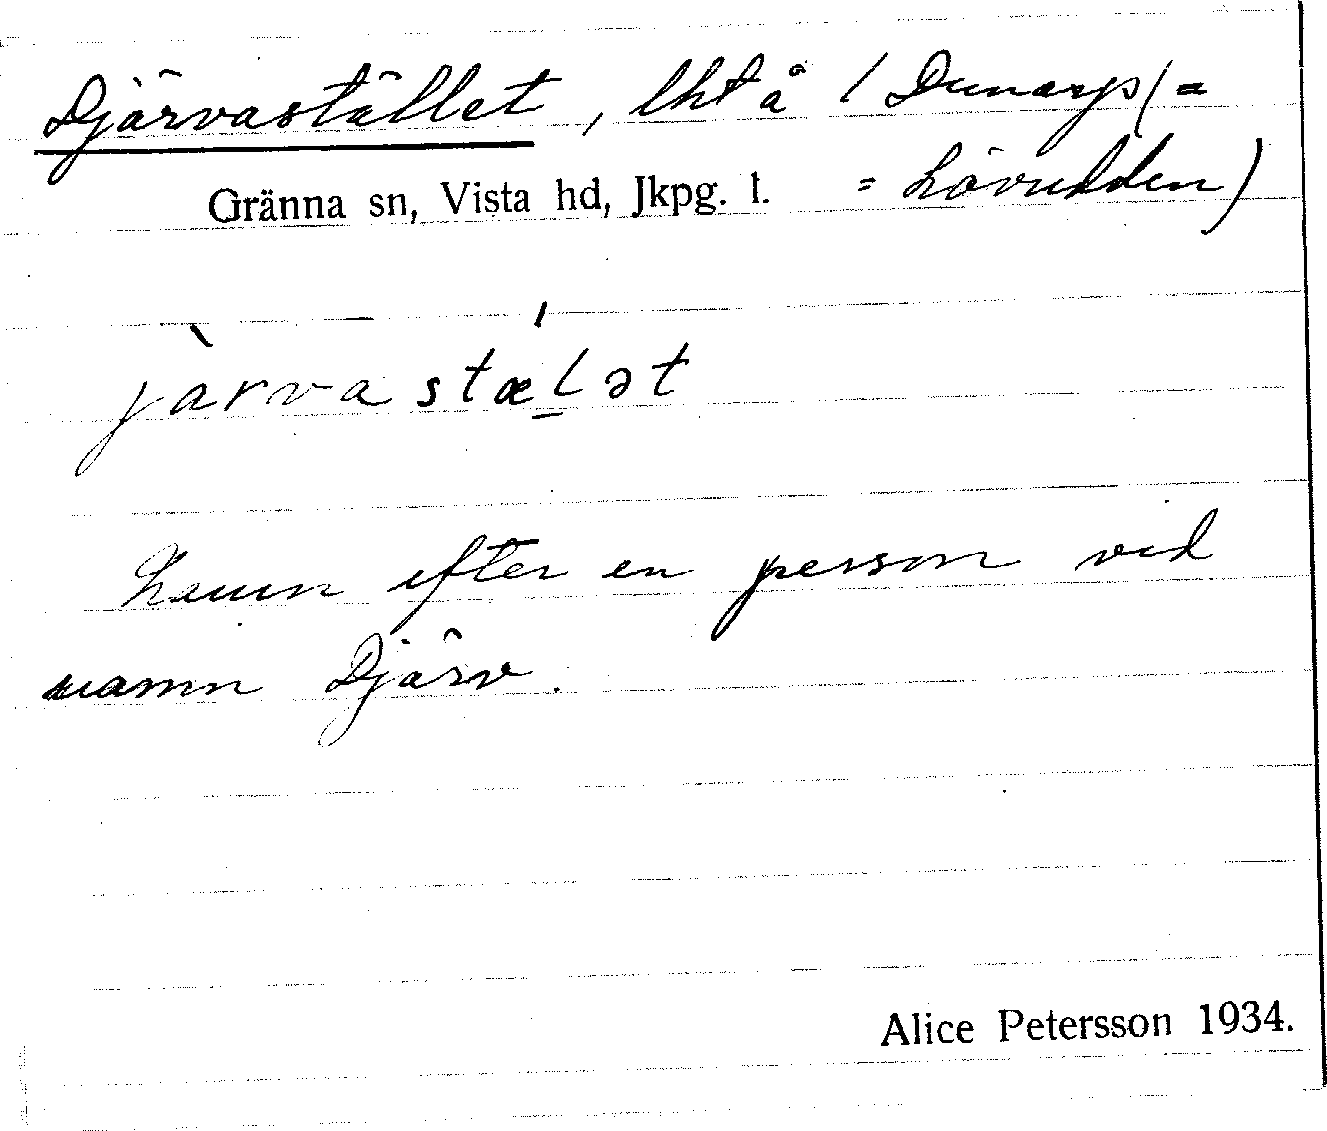 Djärvastället, lht å (Dunarp (=
Gränna sn, Vista hd, Jkpg. l. = Lövudden)
jàrvastælət
efter en person vid
namn Djärv.
Alice Petersson 1934.